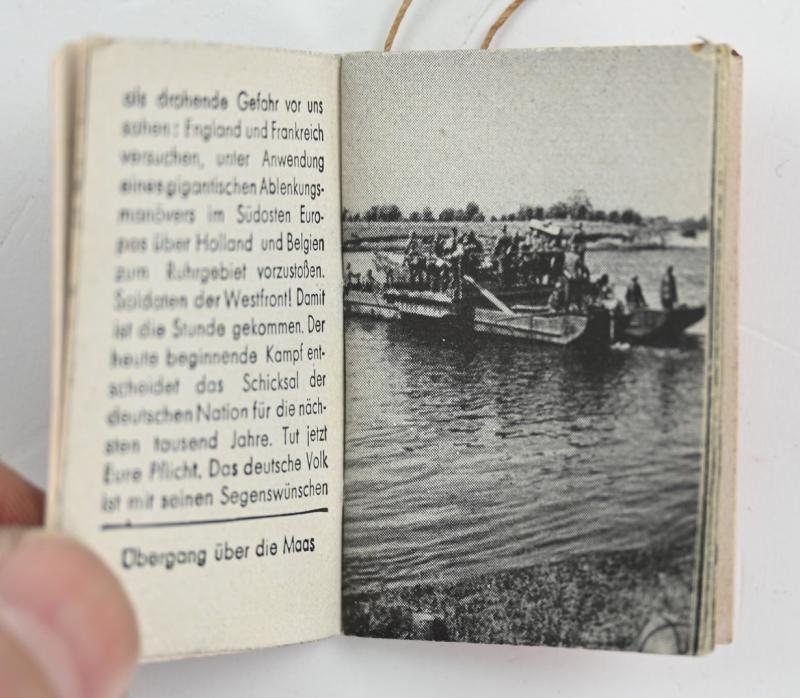 als drohende Gefahr vor uns
sahen: England und Frankreich
versuchen, unter Anwendung
eines gigantischen Ablenkungs-
manövers im Südosten Euro-
pas über Holland und Belgien
zum Ruhrgebiet vorzustoßen.
Soldaten der Westfront! Damit
ist die Stunde gekommen. Der
heute beginnende Kampf ent-
scheidet das Schicksal der
deutschen Nation für die näch-
sten tausend Jahre. Tut jetzt
Eure Pflicht. Das deutsche Volk
ist mit seinen Segenswünschen
Übergang über die Maas